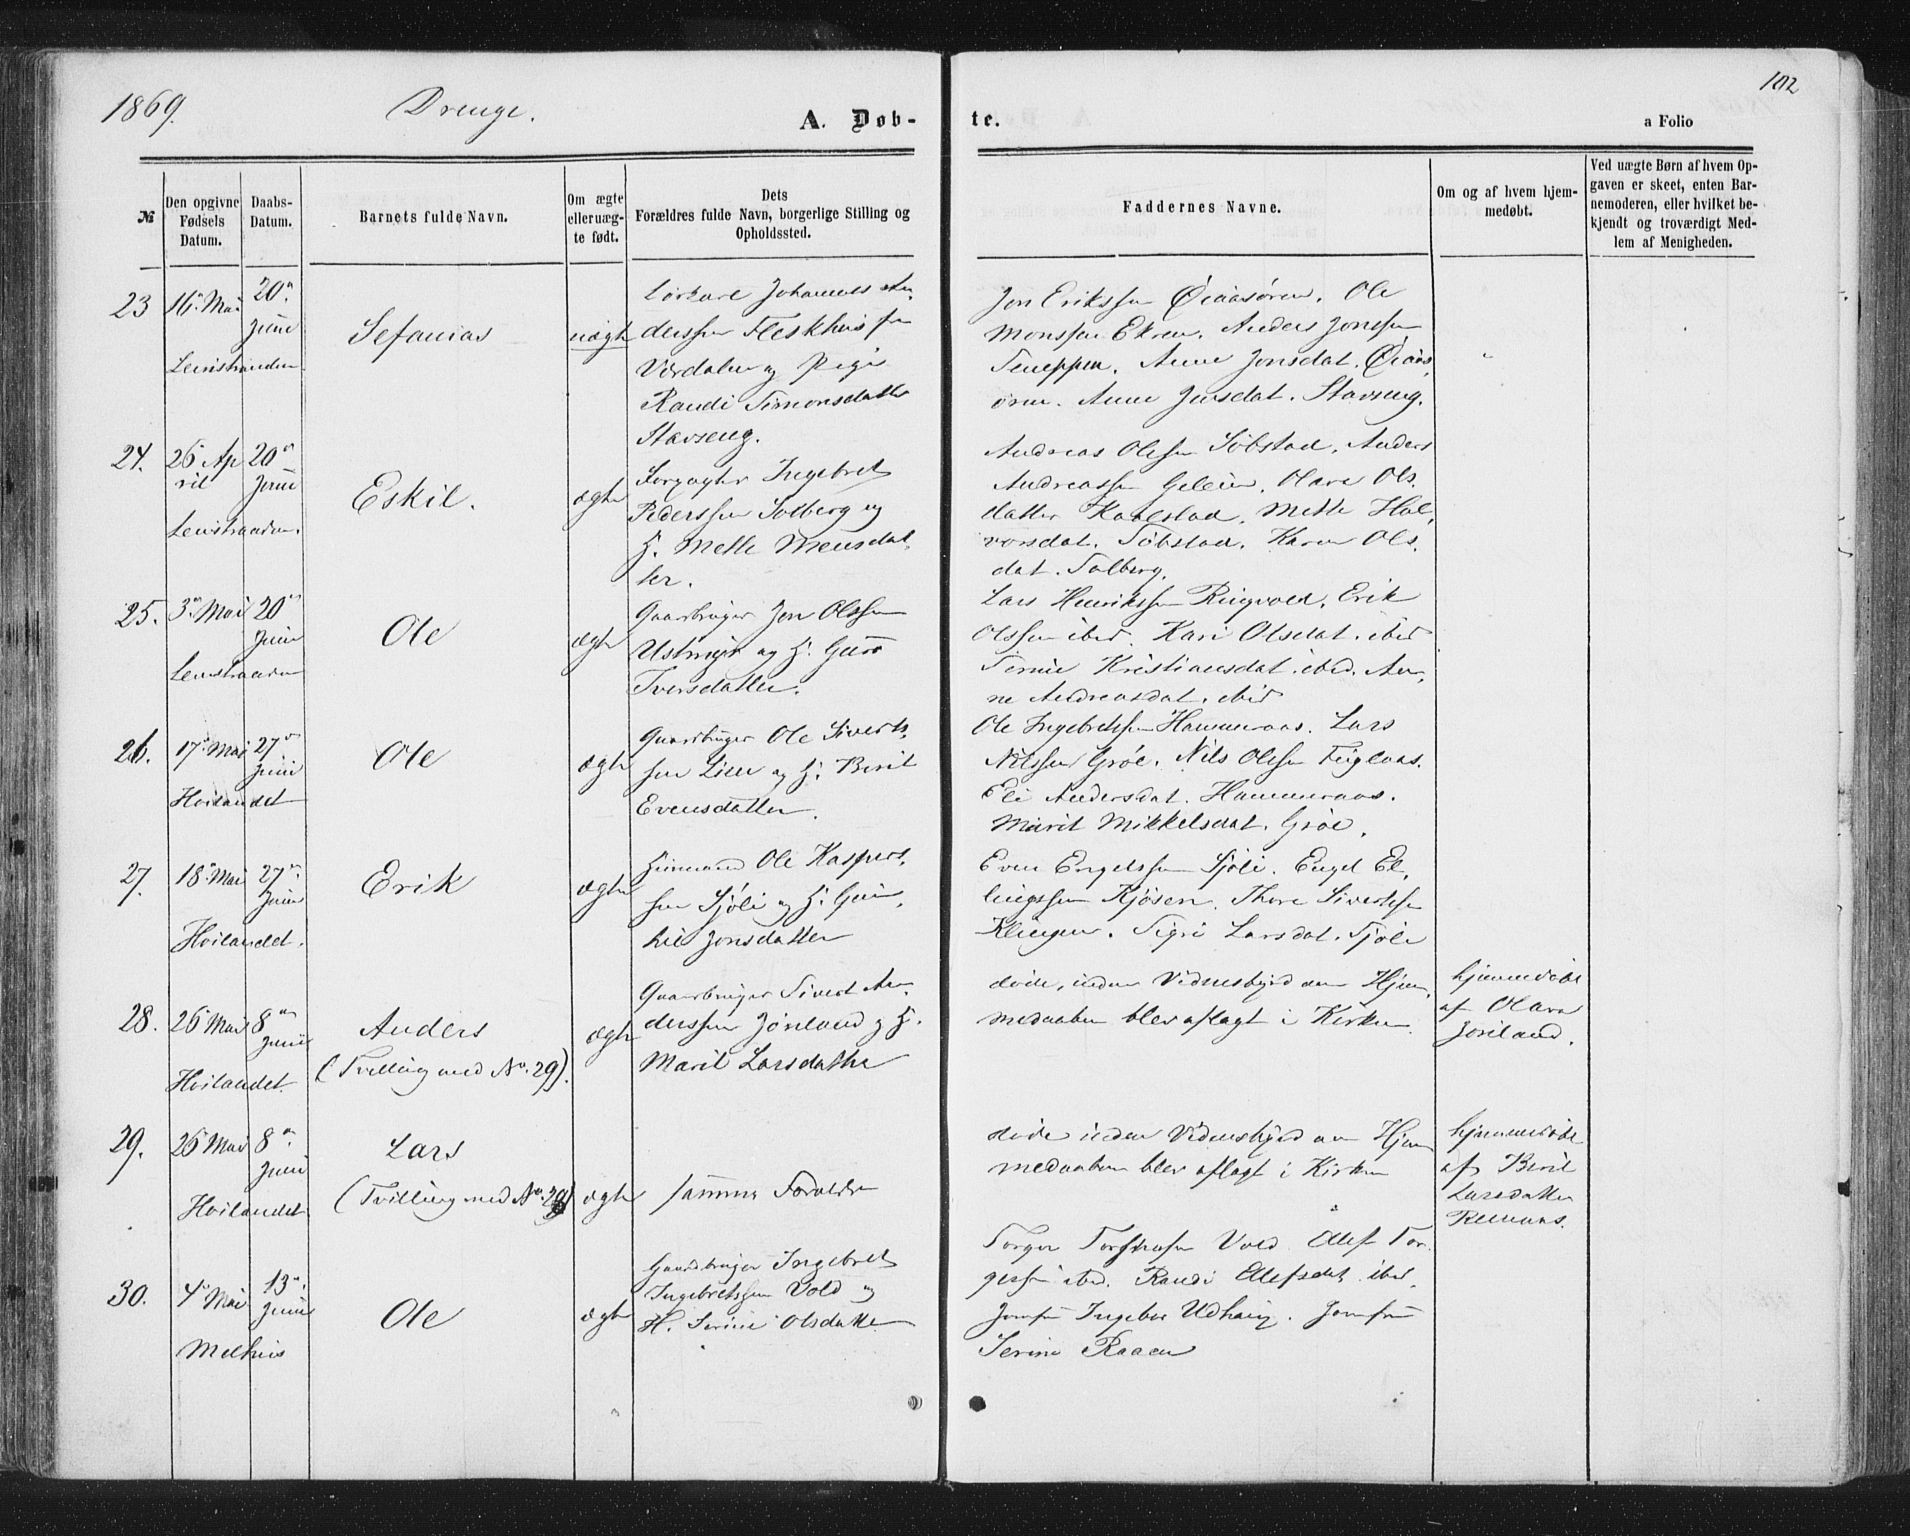 1869.
Drenge.
A. Døb-
te.
a Folio
102
№
Den opgivne
Fødsels
Datum.
Daabs-
Datum.
Barnets fulde Navn.
Om ægte
eller uæg-
te født.
Dets
Forældres fulde Navn, borgerlige Stilling og
Opholdssted.
Faddernes Navne.
Om og af hvem hjem-
medøbt.
Ved uægte Børn af hvem Op-
gaven er skeet, enten Bar-
nemoderen, eller hvilket be-
kjendt og troværdigt Med-
lem af Menigheden.
23
16 Mai
Leinstranden
20
Juni
Sefanias
uægte
Johannes An-
derssen Fleskhus fra
Værdalen og Pige
Randi Simonsdatter
Stavseng.
Jon Erikssen Øiaasøren. Ole
Monssen Ekren. Anders Jonssen
Anne Jonsdat. Øiaas-
øren. Anne Jensdat. Stavseng.
24.
26 Ap
ril
Leinstranden.
20
Juni
Eskil.
ægte
Forpagter Ingebret
Pederssen Solberg og
H. Mette
ter.
Andreas Olssen Søbstad. Anders
Andreassen Olava Ols-
datter Kaalstad. Mette Hal-
vorsdat. Søbstad. Karen Ols-
dat. Solberg.
25.
3 Mai
Leinstranden
20
Juni
Ole
ægte
Gaardbruger Jon Olssen
Ustmyr og H. Guro
Iversdatter.
Lars Henrikssen Ringvold. Erik
Olssen ibid. Kari Olsdat. ibid
Kristiansdat. ibid. An-
ne Andreasdat. ibid
26.
17 Mai
Høilandet
27
Juni
Ole
ægte
Gaardbruger Ole Siverts-
sen Lien og H. Berit
Evensdatter.
Ole Ingebretssen Hammeraas. Lars
Nilssen Grøe. Nils Olssen Fuglaas.
Eli Andersdat. Hammeraas.
Marit Mikkelsdat. Grøe.
27.
18 Mai
Høilandet.
27
Juni
Erik
ægte
Ole Kaspers-
sen Sjøli og H. Gun-
hil Jonsdatter
Even Engelssen Sjøli. Engel El-
lingssen Kjøsen. Thore Sivertssen
Klingen. Sigri Larsdat. Sjøli
28.
26 Mai
Høilandet
8
Juni
Anders
(Tvilling med No. 29).
ægte
Gaardbruger Sivert An-
derssen Joriland og H.
Marit Larsdatter
døde, inden Vidnesbyrd om Hjem-
medaaben blev aflagt i Kirken
hjemmedøbt
af Olava
Joriland.
29.
26 Mai
Høilandet
8
Juni
Lars
(Tvilling med No. 28)
ægte
samme Forældre
døde inden Vidnesbyrd om Hjem
medaaben blev aflagt i Kirken
hjemmedøbt
af Berit
Larsdatter
30.
4 Mai
Melhus
13
Juni
Ole
ægte
Gaardbruger Ingebret
Ingebretssen Vold og
H. Serine Olsdatter
Torger Vold. Ellef Tor-
gerssen ibid. Randi Ellefsdat. ibid.
Jomfru Ingebor Udhaug. Jomfru
Serine Raaen